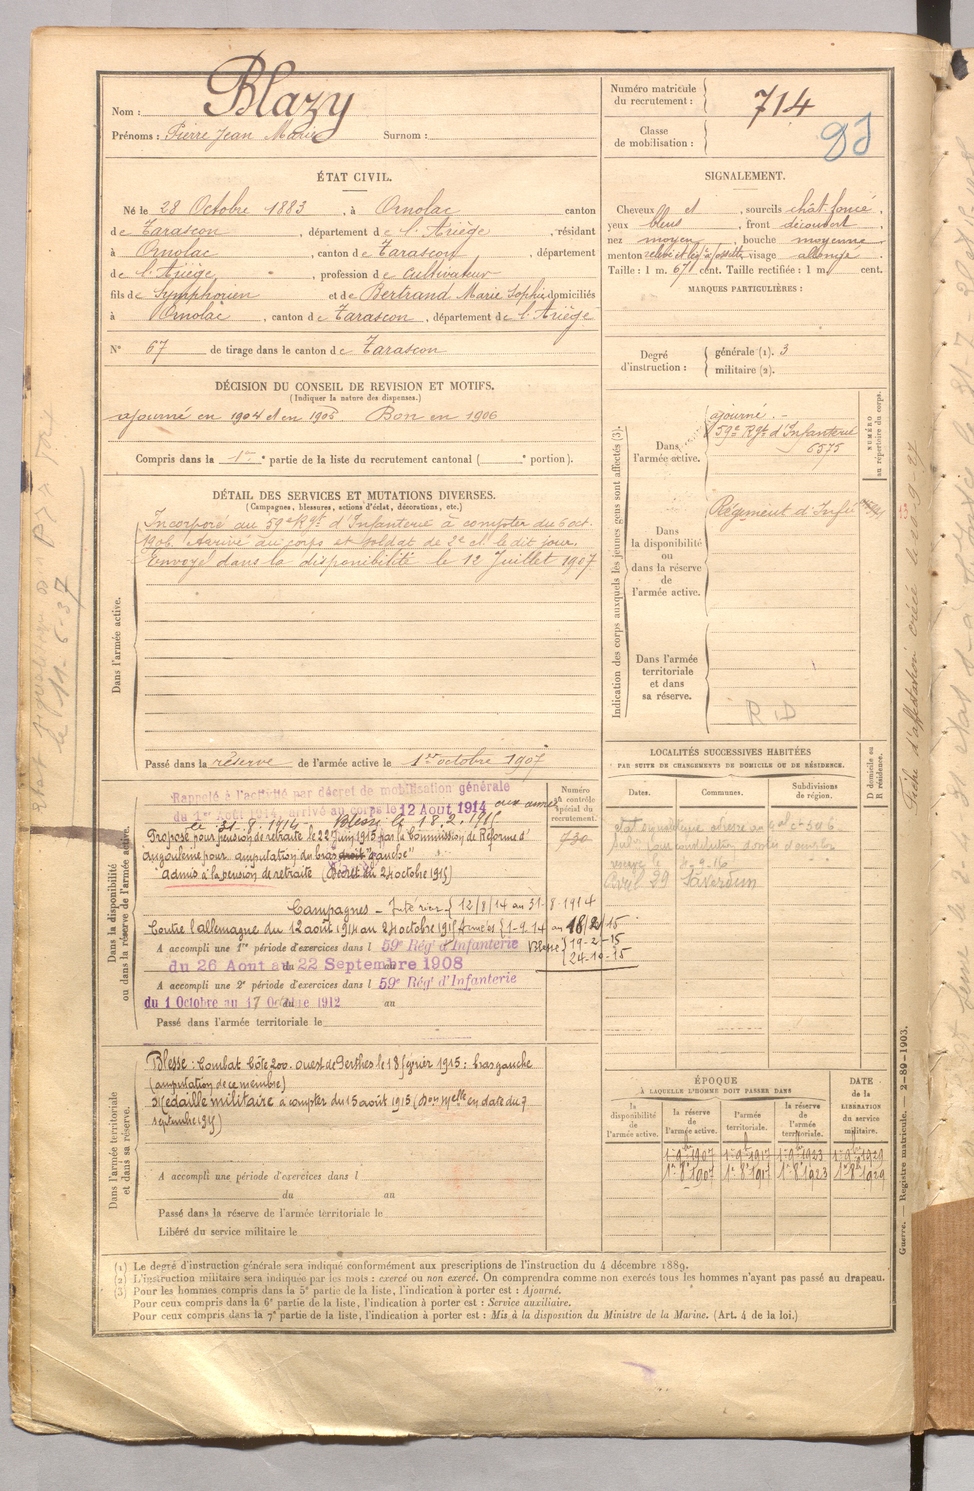 Nom : Blazy
Prénoms : Pierre Jean Marie Surnom :
Numéro matricule du recrutement : 714
Classe de mobilisation :
ÉTAT CIVIL.
Né le 28 Octobre 1883, à Ornolac canton
de Tarascon, département de l'Ariège, résidant
à Ornolac, canton de Tarascon, département
de l'Ariège, profession de Cultivateur
fils de Symphorien et de Bertrand Marie Sophie domiciliés
à Ornolac, canton de Tarascon, département de l'Ariège
N° 67 de tirage dans le canton de Tarascon
SIGNALEMENT.
Cheveux et, sourcils chât foncé,
yeux bleus, front découvert
nez moyen, bouche moyenne
menton à fossette, visage allongé
Taille : 1 m. 67 cent. Taille rectifiée : 1 m. cent.
MARQUES PARTICULIÈRES :
Degré d'instruction : générale (1). 3
militaire (2).
DÉCISION DU CONSEIL DE REVISION ET MOTIFS.
(Indiquer la nature des dispenses.)
ajourné en 1904 et en 1905 Bon en 1906
Compris dans la 1re partie de la liste du recrutement cantonal ( e portion).
DÉTAIL DES SERVICES ET MUTATIONS DIVERSES.
(Campagnes, blessures, actions d'éclat, décorations, etc.)
Dans l'armée active.
Incorporé au 59e Rgt d'Infanterie à compter du 6 oct.
1906. Arrivé au corps et soldat de 2e cl le dit jour.
Envoyé dans la disponibilité le 12 Juillet 1907
Passé dans la réserve de l'armée active le 1er octobre 1907
Indication des corps auxquels les jeunes gens sont affectés (3).
NUMÉRO au répertoire du corps.
Dans l'armée active.
ajourné. -
59e Rgt d'Infanterie
6575
Dans la disponibilité ou dans la réserve de l'armée active.
Régiment d'Infie
Dans l'armée territoriale et dans sa réserve.
R D
LOCALITÉS SUCCESSIVES HABITÉES
PAR SUITE DE CHANGEMENTS DE DOMICILE OU DE RÉSIDENCE.
D domicile ou R résidence.
Dates. Communes. Subdivisions de région.
Avril 29 Saverdun
Dans la disponibilité ou dans la réserve de l'armée active.
Numéro au contrôle spécial du recrutement.
730
Rappelé à l'activité par décret de mobilisation générale
du 1er Août 1914, arrivé au corps le 12 Août 1914 aux armées
le 31-8-1914 Blessé le 18.2.1915
Proposé pour pension de retraite le 22 Juin 1915 par la Commission de Réforme d'
Angoulême pour amputation du bras droit "gauche"
admis à la pension de retraite (Décret du 24 octobre 1915)
Campagnes - Intérieur { 12/8/14 au 31-8-1914
Contre l'allemagne du 12 août 1914 au 24 octobre 1915 Armées { 1-9-14 au 18/2/15
A accompli une 1re période d'exercices dans l 59e Rég' d'Infanterie Blessé { 19-2-15
du 26 Aout au 22 Septembre 1908 24-10-15
A accompli une 2e période d'exercices dans l 59e Rég' d'Infanterie
du 1 Octobre au 17 Octobre 1912 au
Passé dans l'armée territoriale le
Dans l'armée territoriale et dans sa réserve.
Blessé : Combat Côte 200. ouest de Perthes le 18 février 1915 : bras gauche
(amputation de ce membre)
Médaille militaire à compter du 15 août 1915 (Don Mlle en date du 7
septembre 1915)
A accompli une période d'exercices dans l
du au
Passé dans la réserve de l'armée territoriale le
Libéré du service militaire le
ÉPOQUE
À LAQUELLE L'HOMME DOIT PASSER DANS
DATE de la LIBÉRATION du service militaire.
la disponibilité de l'armée active. la réserve de l'armée active. l'armée territoriale. la réserve de l'armée territoriale.
1er 9bre 1907 1er 9bre 1917 1er 9bre 1923 1er 9bre 1929
1er 8bre 1907 1er 8bre 1917 1er 8bre 1923 1er 8bre 1929
(1) Le degré d'instruction générale sera indiqué conformément aux prescriptions de l'instruction du 4 décembre 1889.
(2) L'instruction militaire sera indiquée par les mots : exercé ou non exercé. On comprendra comme non exercés tous les hommes n'ayant pas passé au drapeau.
(3) Pour les hommes compris dans la 5e partie de la liste, l'indication à porter est : Ajourné.
Pour ceux compris dans la 6e partie de la liste, l'indication à porter est : Service auxiliaire.
Pour ceux compris dans la 7e partie de la liste, l'indication à porter est : Mis à la disposition du Ministre de la Marine. (Art. 4 de la loi.)
Guerre. — Registre matricule. — 2-89-1903.
le 11-6-37